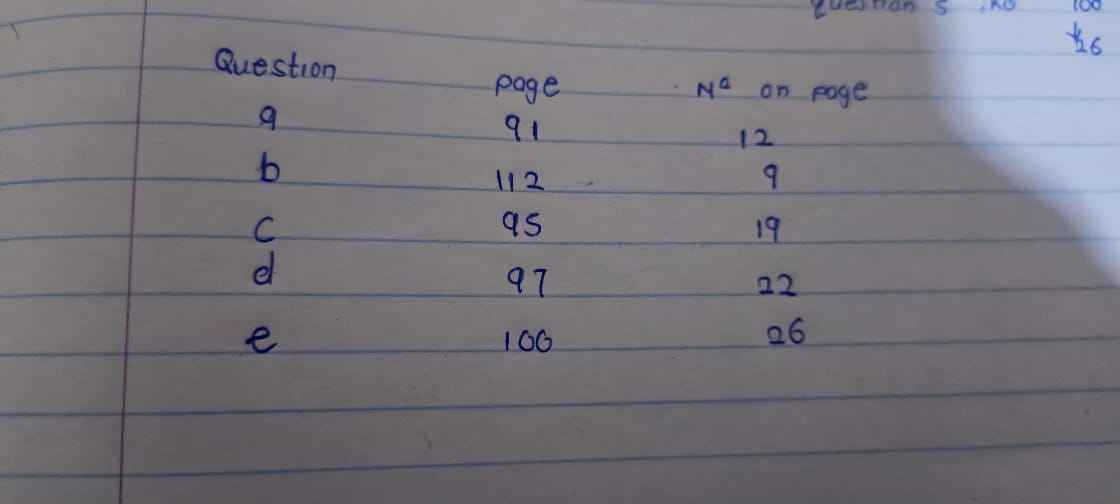 Question 5 100
26
Question page Nº on page
a 91 12
b 112 9
c 95 19
d 97 22
e 100 26